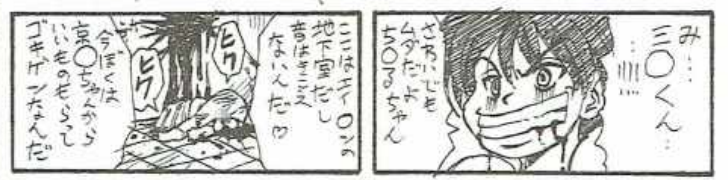 み…
三〇くん…
さわいでも
ムダだよ
ち〇るちゃん
ここはエイ〇ンの
地下室だし
音はきこえ
ないんだ♡
ヒク
ヒク
今ぼくは
京〇ちゃんから
いいものもらって
ゴキゲンなんだ